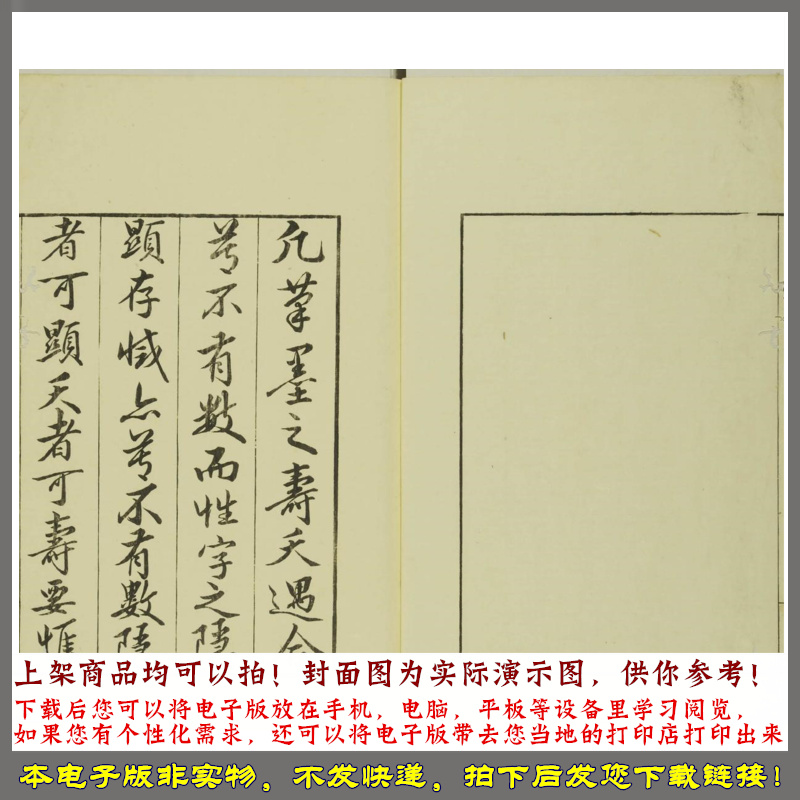 凡筆墨之壽夭遇合
莫不有數而姓字之隱
顯存滅亦莫不有數隱
者可顯夭者可壽要惟
上架商品均可以拍！封面图为实际演示图，供你参考！
下载后您可以将电子版放在手机，电脑，平板等设备里学习阅览，
如果您有个性化需求，还可以将电子版带去您当地的打印店打印出来
本电子版非实物，不发快递，拍下后发您下载链接！